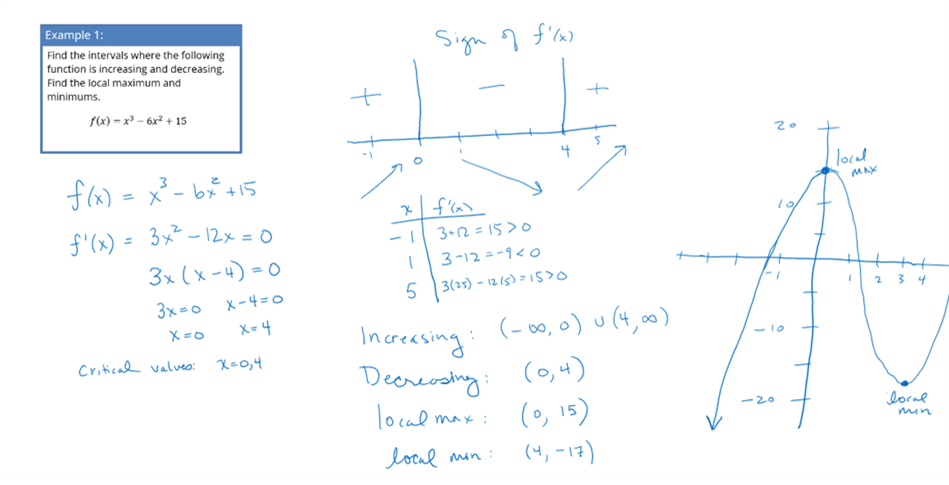 Example 1:
Find the intervals where the following
function is increasing and decreasing.
Find the local maximum and
minimums.
f(x) = x³ − 6x² + 15
f(x) = x³ − 6x² + 15
f'(x) = 3x² − 12x = 0
3x(x − 4) = 0
3x=0 x−4=0
x=0 x=4
Critical values: x=0,4
Sign of f'(x)
+ − +
-1 0 1 4 5
x f'(x)
-1 3+12 = 15 > 0
1 3−12 = −9 < 0
5 3(25) − 12(5) = 15 > 0
Increasing: (−∞, 0) ∪ (4, ∞)
Decreasing: (0, 4)
local max: (0, 15)
local min: (4, −17)
20
local
max
10
-1 1 2 3 4
-10
-20
local
min